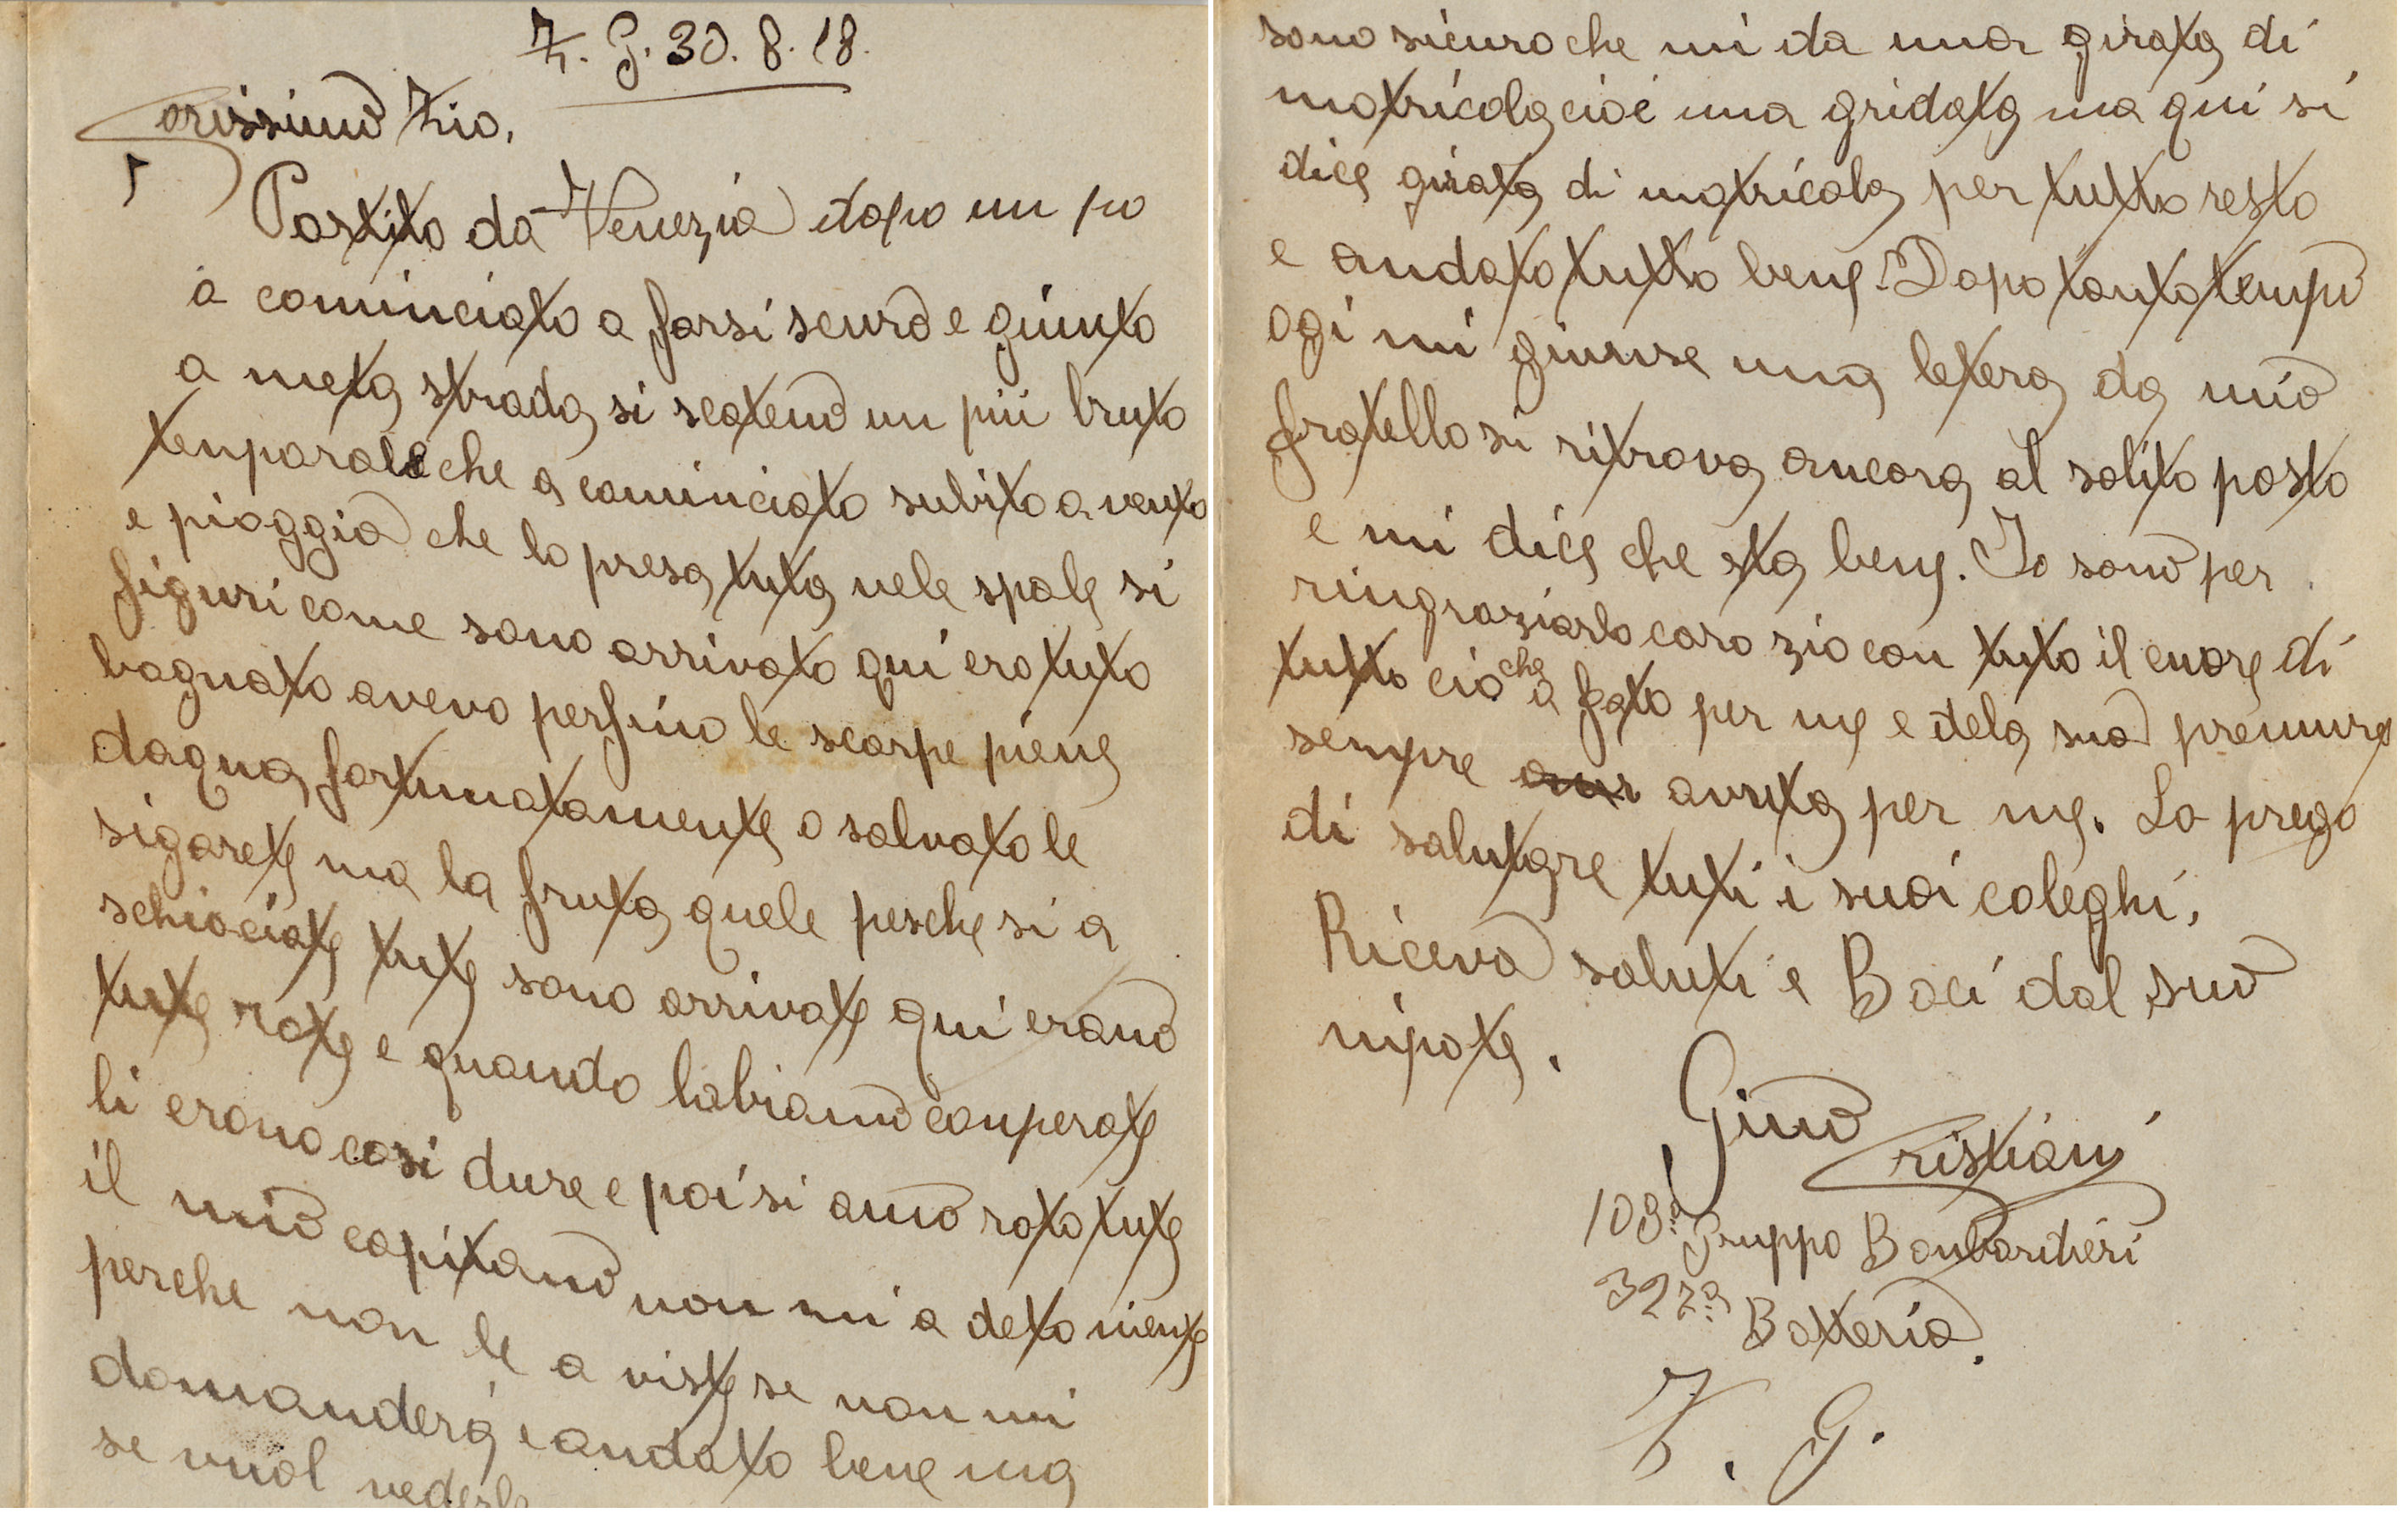 Z. G. 30. 8. 18.
Carissimo Zio,
Partito da Venezia dopo un po
a cominciato a farsi scuro e giunto
a meta strada si scateno un più bruto
tenporale che a cominciato subito a vento
e pioggia che lo presa tuta nele spale si
figuri come sono arrivato qui ero tuto
bagnato avevo perfino le scarpe piene
daqua fortunatamente o salvato le
sigarete ma la fruta quele pesche si a
schiociate tute sono arrivate qui erano
tute rote e quando labiamo conperate
li erano cosi dure e poi si ano roto tute
il mio capitano non mi a deto niente
perche non le a viste se non mi
domanderà e andato bene ma
se vuol vederle
sono sicuro che mi da una girata di
matricola cioè una gridata ma qui si
dice girata di matricola per tutto resto
e andato tutto bene. Dopo tanto tempo
ogi mi giunse una letera da mio
fratello si ritrova ancora al solito posto
e mi dice che sta bene. Io sono per
ringraziarlo caro zio con tuto il cuore di
tutto ciò che a fato per me e dela sua premura
sempre avuta per me. Lo prego
di salutare tuti i suoi coleghi.
Riceva saluti e Baci dal suo
nipote.
Gino
Cristiani
108º Gruppo Bonbardieri
327ª Batteria.
Z. G.